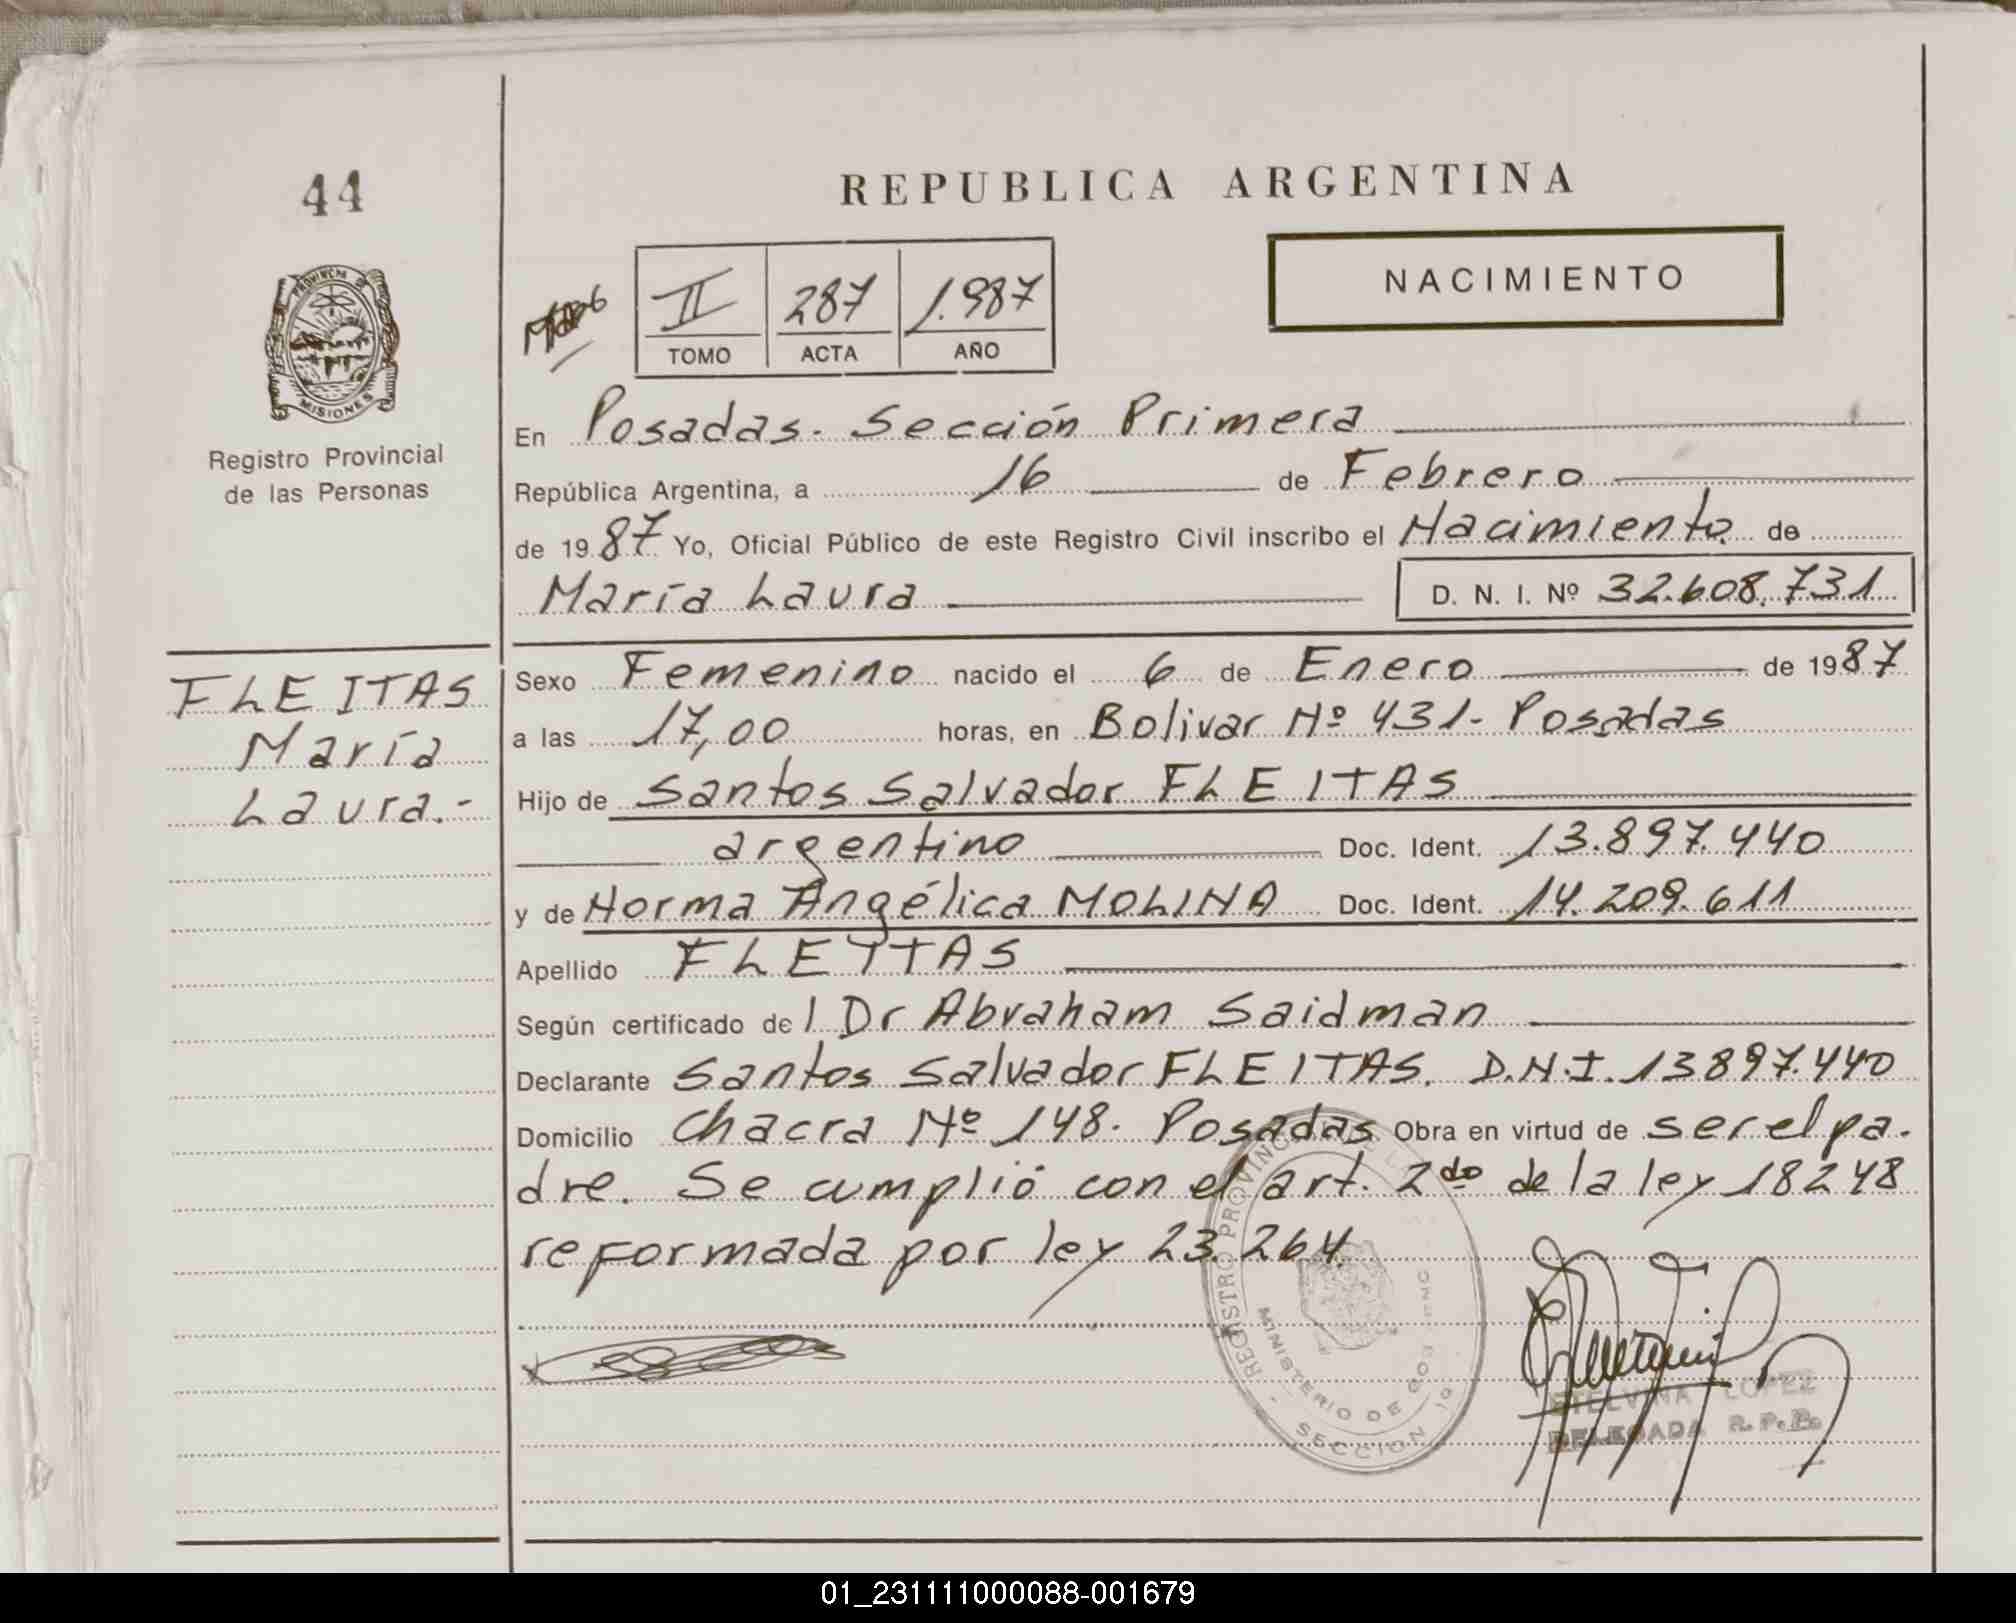 44
REPUBLICA ARGENTINA
NACIMIENTO
II 287 1.987
TOMO ACTA AÑO
PROVINCIA DE
MISIONES
Registro Provincial
de las Personas
En Posadas. Sección Primera
República Argentina, a 16 de Febrero
de 1987 Yo, Oficial Público de este Registro Civil inscribo el Nacimiento de
María Laura D. N. I. Nº 32.608.731
FLEITAS
María
Laura.-
Sexo Femenino nacido el 6 de Enero de 1987
a las 17,00 horas, en Bolivar Nº 431- Posadas
Hijo de Santos Salvador FLEITAS
argentino Doc. Ident. 13.897.440
y de Norma Angélica MOLINA Doc. Ident. 14.209.611
Apellido FLEITAS
Según certificado del Dr Abraham Saidman
Declarante Santos Salvador FLEITAS. D.N.I. 13897.440
Domicilio Chacra Nº 148. Posadas Obra en virtud de ser el pa-
dre. Se cumplió con el art. 2do de la ley 18248
reformada por ley 23.264.
REGISTRO PROVINCIAL DE
MINISTERIO DE GOB
SECCION 1º
ETELVINA LOPEZ
DELEGADA R. P. P.
01_231111000088-001679